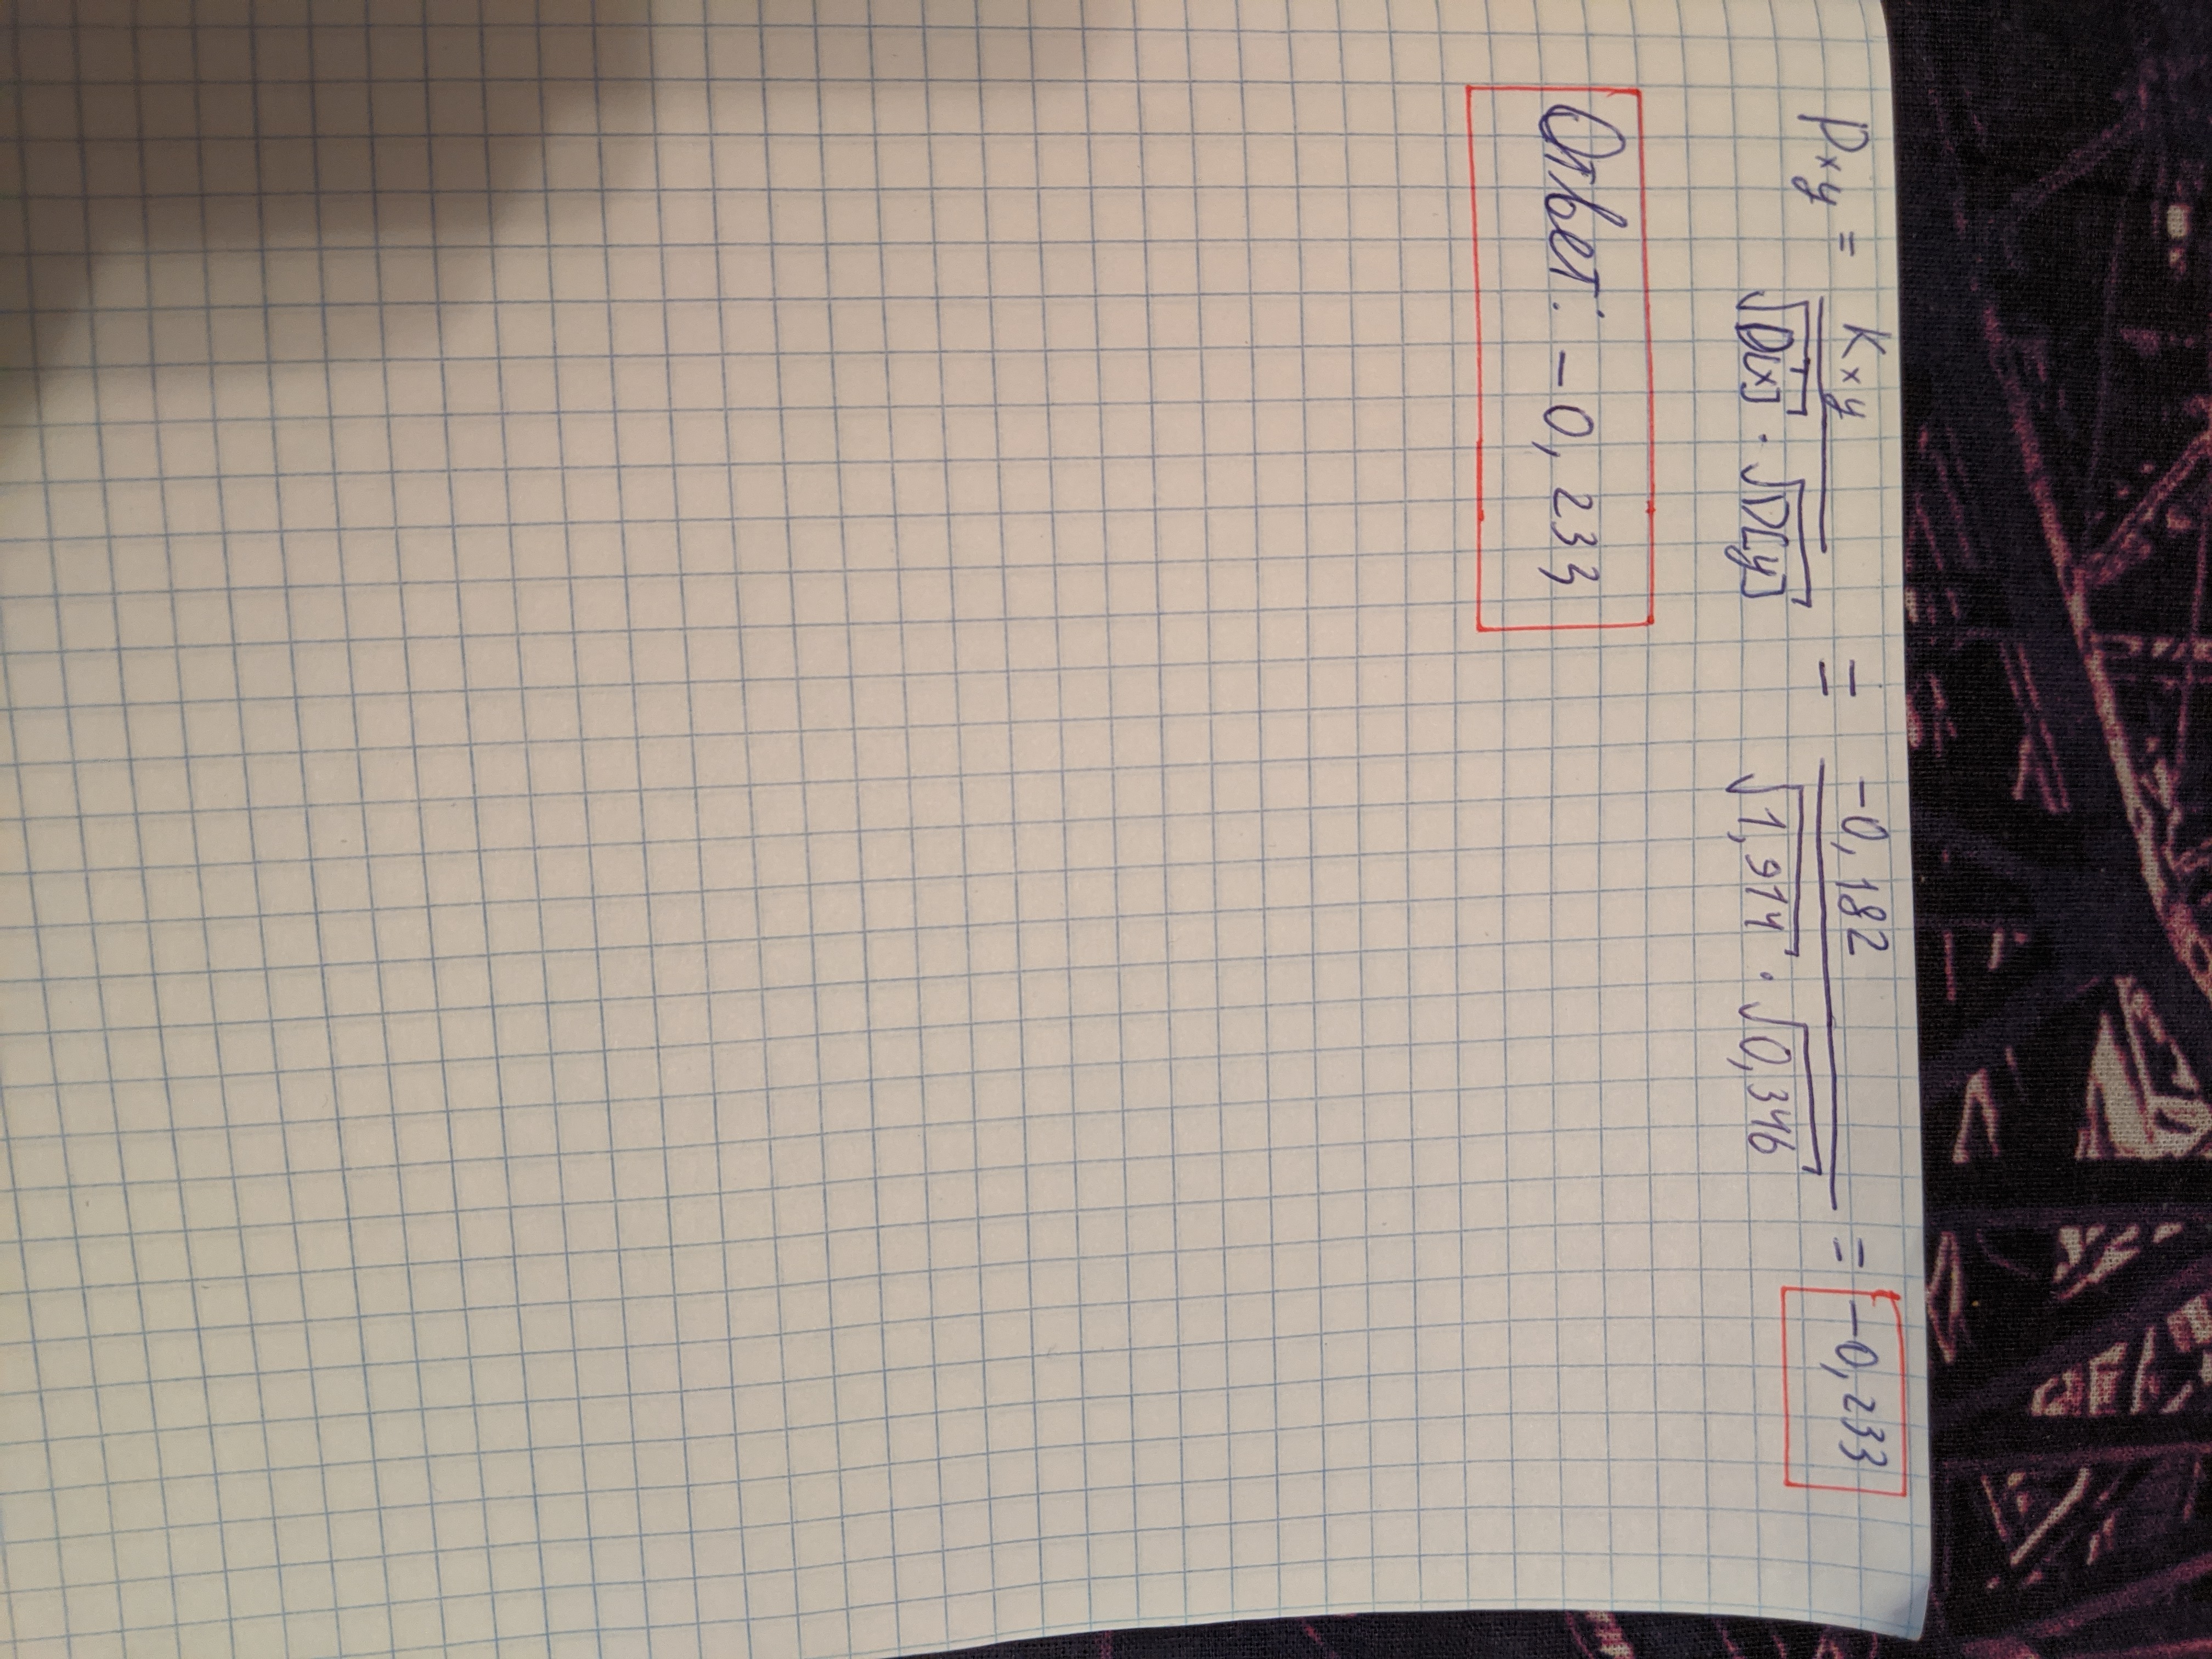 Pxy = Kxy / √D[x] · √D[y] = -0,182 / √1,914 · √0,346 = -0,233
Ответ: -0,233